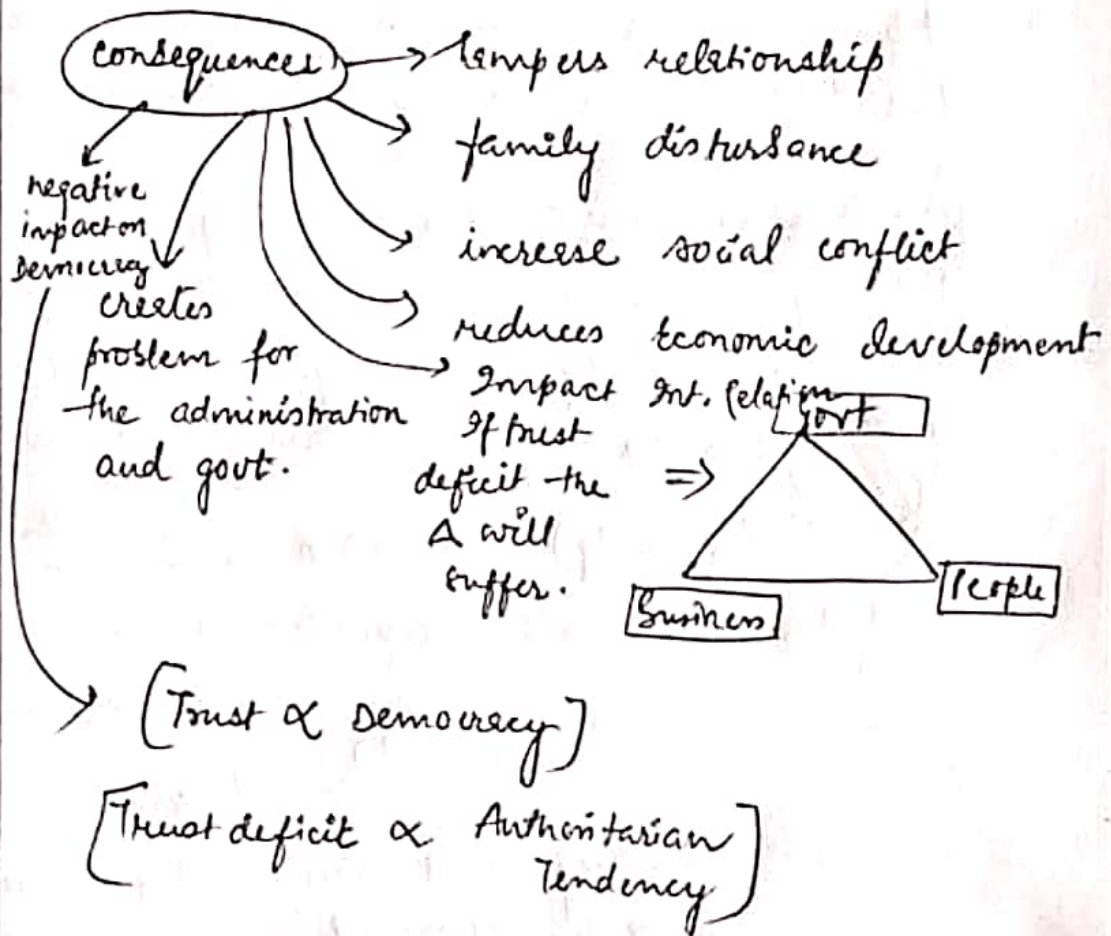 consequences
tempers relationship
family disturbance
increase social conflict
reduces Economic development
Impact Int. Relation
negative
impact on
Democracy
creates
problem for
the administration
and govt.
If trust
deficit the
Δ will
suffer.
⇒
Govt
Business
People
[Trust ∝ Democracy]
[Trust deficit ∝ Authoritarian
Tendency]